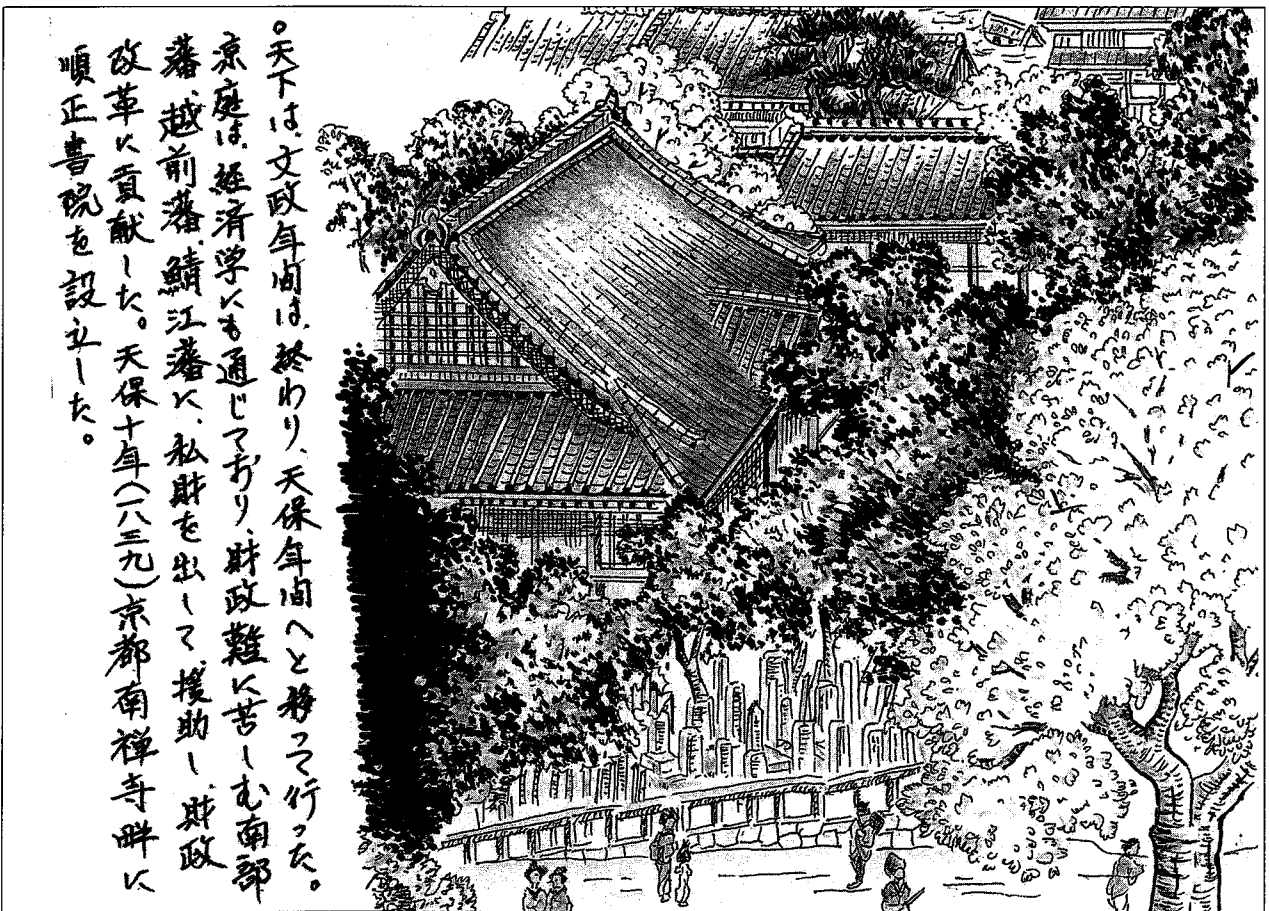 。天下は、文政年間は、終わり、天保年間へと移って行った。
京庭は、経済学にも通じており、財政難に苦しむ南部
藩、越前藩、鯖江藩に、私財を出して援助し、財政
改革に貢献した。天保十年(一八三九)京都南禅寺畔に
順正書院を設立した。